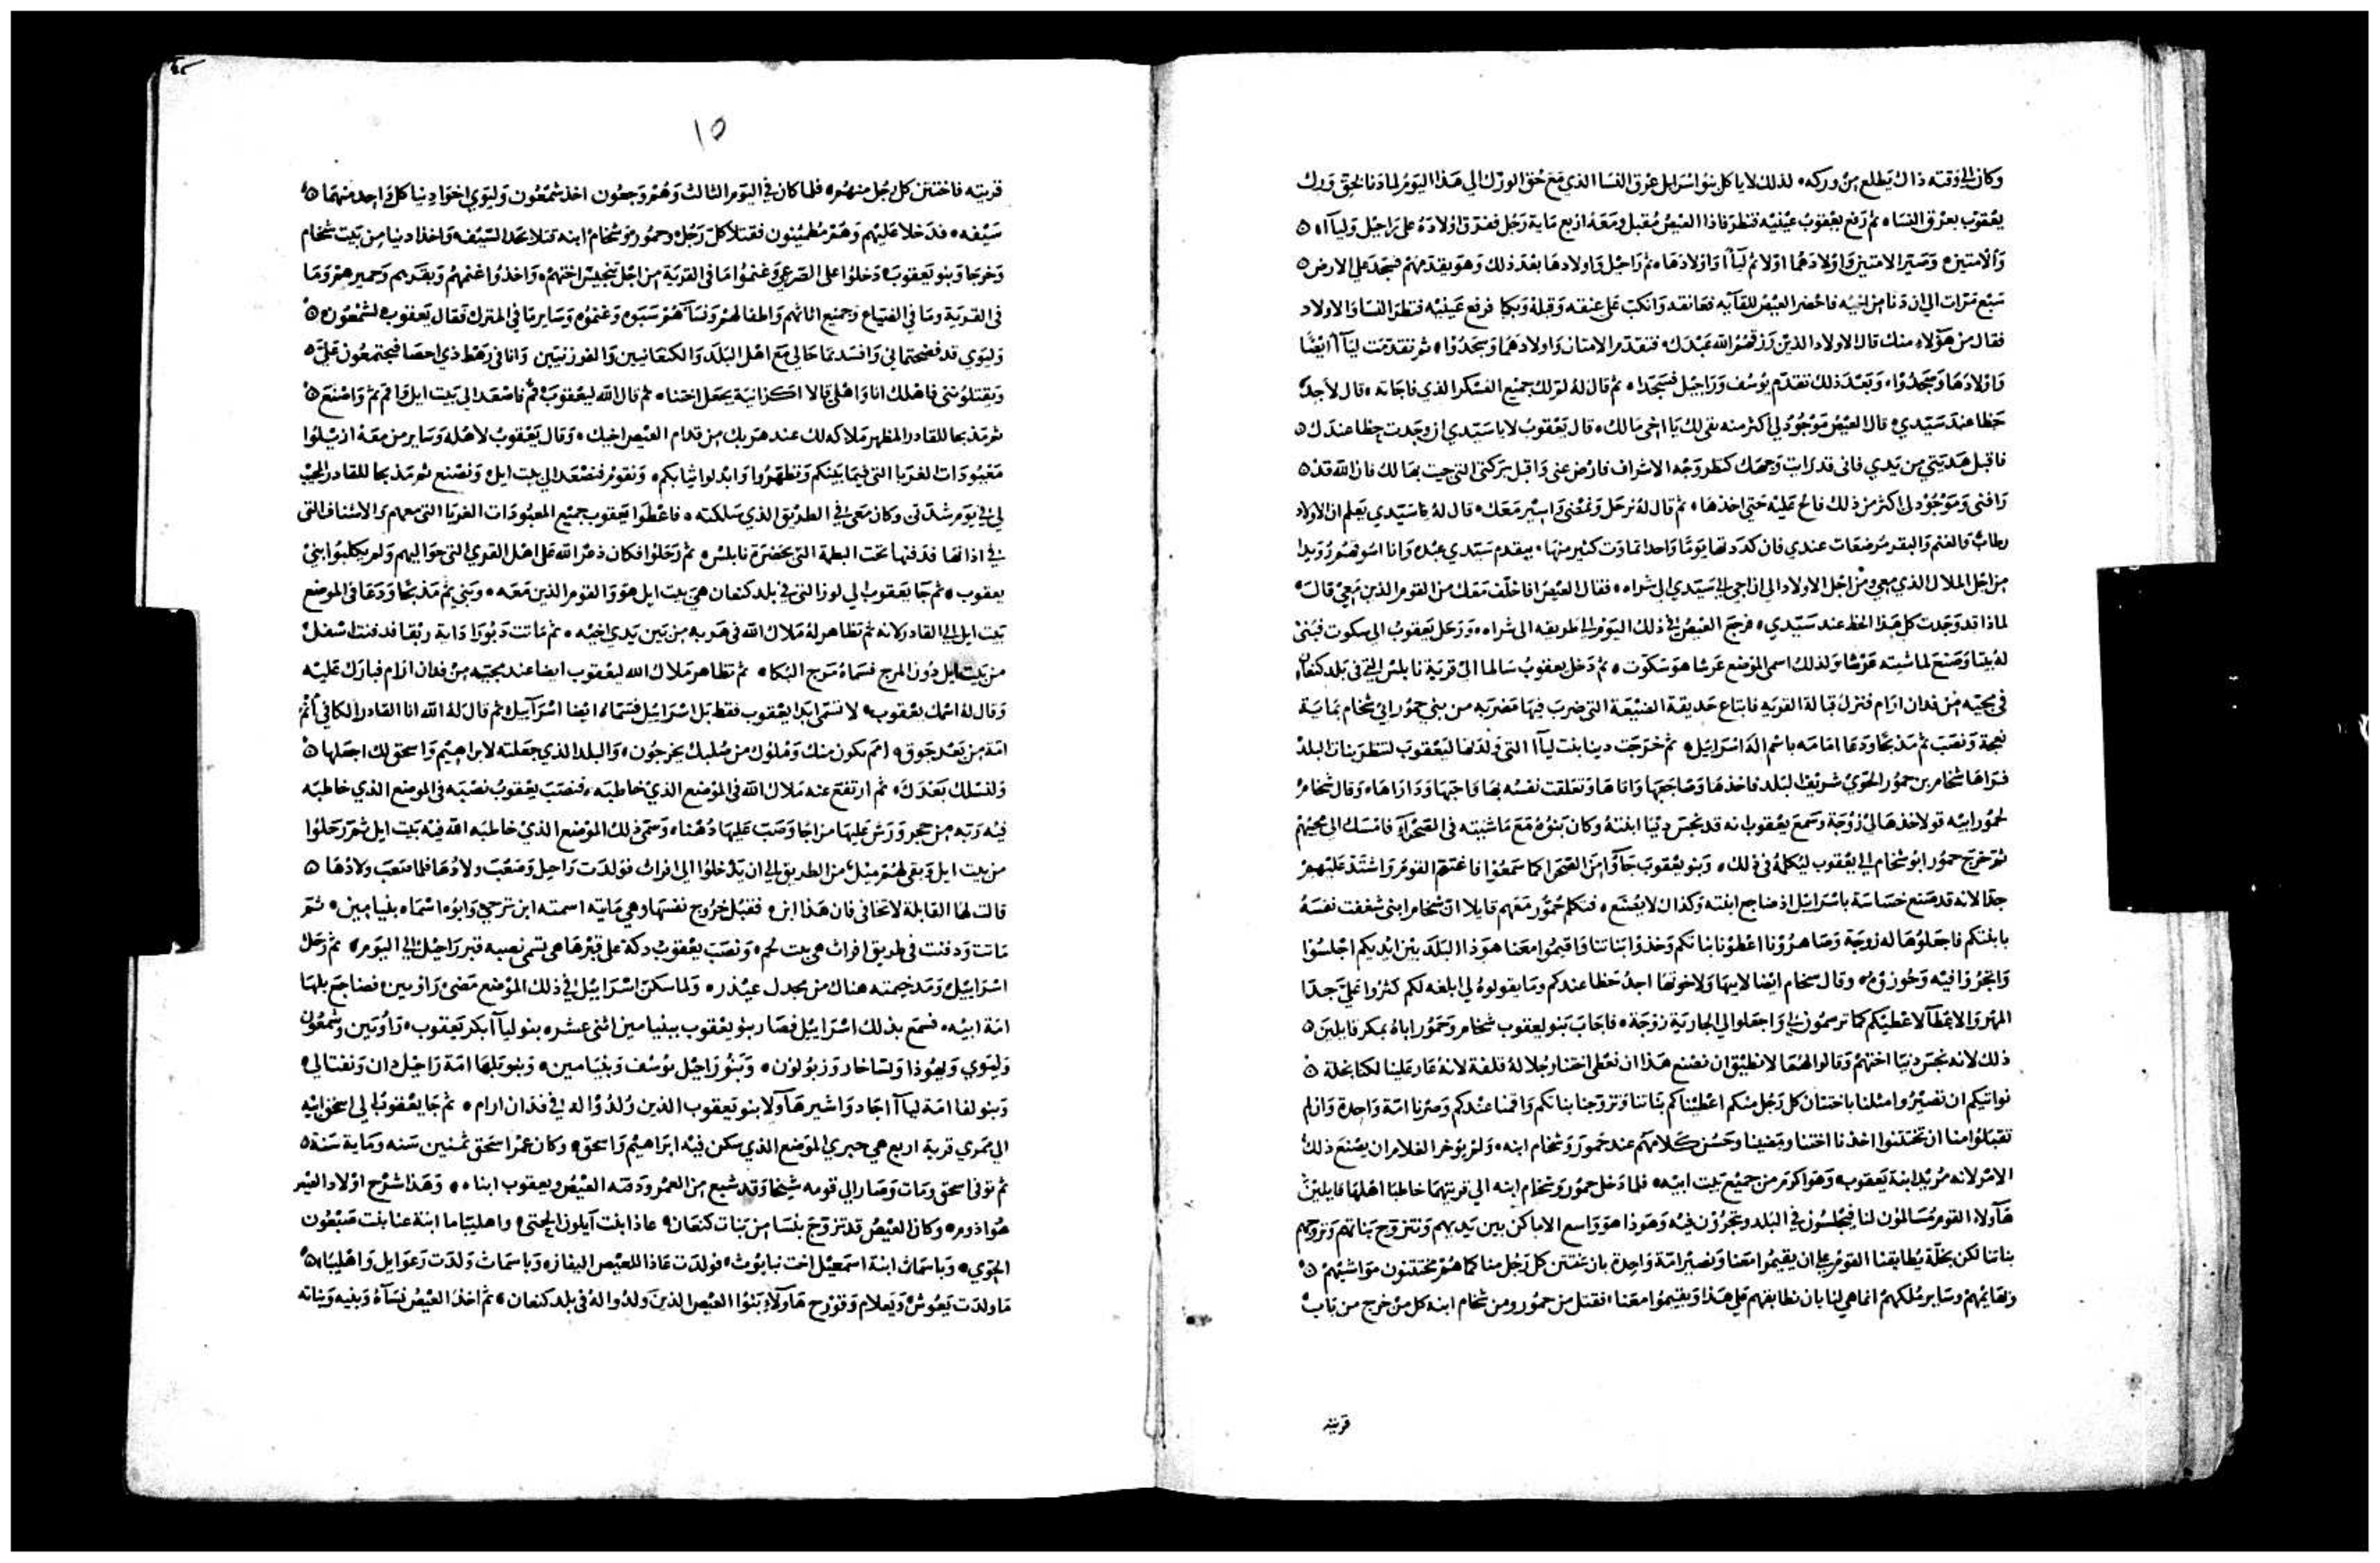 وكان في وقته ذاك يطلع من وركه لذلك لا ياكل بنوا اسرايل عرق النسا الذي مع حق الورك الي هذا اليوم لما دنا بحق ورك
يعقوب بعرق النساه ثم رفع يعقوب عينيه فنظر فاذا العيص مقبل ومعه اربع ماية رجل ففرق اولاده على راحيل وليآا ه
والامتين وصير الامتين واولادهما اولا ثم ليآا واولادها ثم راحيل واولادها بعد ذلك وهو يقدمهم فسجد على الارض ه
سبع مرات الي ان دنا من اخيه فاحضر العيص للقآيه فعانقه وانكب على عنقه وقبله وبكا فرفع عينيه فنظر النسا والاولاد
فقال من هؤلاء منك قال الاولاد الذين رزقهم الله عبدك فتقدم الامتان واولادهما وسجدوا ثم تقدمت ليآا ايضا
واولادها وسجدوا وبعد ذلك تقدم يوسف وراحيل فسجدا ثم قال له لم لك جميع العسكر الذي فاجاته قال لاجد
حظا عند سيدي قال العيص موجود لي اكثر منه بقي لك يا اخي مالك قال يعقوب لا يا سيدي ان وجدت حظا عندك ه
فاقبل هديتي من يدي فاني قد رايت وجهك كنظر وجه الاشراف فارض عني واقبل بركتي التي جيت بها لك فان الله قد ه
رافني وموجود لي اكثر من ذلك فالح عليه حتي اخذها ثم قال له نرحل ونمضي واسير معك قال له يا سيدي يعلم ان الاولاد
رطاب والغنم والبقر مرضعات عندي فان كددتها يوما واحدا تماوت كثير منها يتقدم سيدي عبده وانا اسوقهم رويدا
من اجل الملاك الذي معي ومن اجل الاولاد الي ان اجي الي سيدي الي شراه فقال العيص اذا اخلف معك من القوم الذين معي قال
لماذا قد وجدت كل هذا الحظ عند سيدي فرجع العيص في ذلك اليوم في طريقه الى شراه ورحل يعقوب الي سكوت فبنى
له بيتا وصنع لماشيته عرشا ولذلك اسمي الموضع عرشا هو سكوت ثم دخل يعقوب سالما الي قرية نابلس التي في بلد كنعان
في مجيه من فدان ارام فنزل قبالة القرية فابتاع حديقة الضيعة التي ضرب فيها مضربه من بني حمور ابي شخام بماية
نعجة ونصب ثم مذبحا ودعا امامه باسم اله اسرايل ثم خرجت دينا بنت ليآا التي ولدتها ليعقوب لتنظر بنات البلد
فراها شخام بن حمور الحوي شريف البلد فاخذها وضاجعها واذاها وتعلقت نفسه بها واحبها وداراها وقال شخام
لحمور ابيه قولا خذها لي زوجة وسمع يعقوب انه قد نجس دينا ابنته وكان بنوه مع ماشيته في الصحرآء فامسك الي مجيهم
ثم خرج حمور ابو شخام الي يعقوب ليكلمه في ذلك وبنو يعقوب جآؤا من الصحرا كما سمعوا فاغتم القوم واشتد عليهم
جدا لانه قد صنع خساسة باسرايل اذ ضاجع ابنته وكذاك لا يصنع فتكلم حمور معهم قايلا ان شخام ابني شغفت نفسه
بابنتكم فاجعلوها له زوجة وصاهرونا اعطونا بناتكم وخذوا بناتنا واقيموا معنا هوذا البلد بين ايديكم اجلسوا
واتجروا فيه وحوزوه وقال شخام ايضا لابيها ولاخوتها اجد حظا عندكم وما يقولوه لي ابلغه لكم كثروا علي جدا
المهر والاعطآ لاعطيكم كما ترسمون لي واجعلوا لي الجارية زوجة فاجاب بنو يعقوب شخام وحمور اباه بمكر قايلين ه
ذلك لانه نجس دينا اختهم وقالوا لهما لا نطيق ان نصنع هذا ان نعطي اختنا رجلا له قلفة لانه عار علينا لكنا بخلة ه
نواتيكم ان تصيروا مثلنا باختتان كل رجل منكم اعطيناكم بناتنا وتزوجنا بناتكم واقمنا عندكم وصرنا امة واحدة وان لم
تقبلوا منا ان تختتنوا اخذنا اختنا ومضينا وحسن كلامهم عند حمور وشخام ابنه ولم يوخر الغلام ان يصنع ذلك
الامر لانه مريد ابنة يعقوب وهو اكرم من جميع بيت ابيه فلما دخل حمور وشخام ابنه الي قريتهما خاطبا اهلها قايلين
هآولاء القوم مسالمون لنا فيجلسون في البلد ويتجرون فيه وهوذا هو واسع الاماكن بين يديهم ونتزوج بناتهم ونزوجهم
بناتنا لكن بخلة يطابقنا القوم علي ان يقيموا معنا ونصير امة واحدة بان يختتن كل رجل منا كما هم مختتنون مواشيهم ه
وبهايمهم وساير ملكهم انما هي لنا بان نطابقهم علي هذا ويقيموا معنا فقبل من حمور ومن شخام ابنه كل من خرج من باب
قريته
١٥
قريته فاختتن كل رجل منهم فلما كان في اليوم الثالث وهم وجعون اخذ شمعون وليوي اخوا دينا كل واحد منهما ه
سيفه فدخلا عليهم وهم مطمينون فقتلا كل رجل وحمور وشخام ابنه قتلا بحد السيف واخذا دينا من بيت شخام
وخرجا وبنو يعقوب دخلوا على الصرعي وغنموا ما في القرية من اجل تنجيس اختهم واخذوا غنمهم وبقرهم وحميرهم وما
في القرية وما في الضياع وجميع اثاثهم واطفالهم ونسآهم سبوه وغنموه وساير ما في المنزل فقال يعقوب لشمعون ه
وليوي قد فضحتماني وافسدتما حالي مع اهل البلد والكنعانيين والفوزنيين وانا في رهط ذي احصا فيجتمعون علي ه
ويقتلونني فاهلك انا واهلي قالا اكزانية يجعل اختنا ثم قال الله ليعقوب قم فاصعد الي بيت ايل واقم ثم واصنع ه
ثم مذبحا للقادر المظهر ملاكه لك عند هربك من قدام العيص اخيك وقال يعقوب لاهله وساير من معه ازيلوا
معبودات الغربا التي فيما بينكم وتطهروا وابدلوا ثيابكم ونقوم فنصعد الي بيت ايل ونصنع ثم مذبحا للقادر المجيب
لي في يوم شدتي وكان معي في الطريق الذي سلكته فاعطوا يعقوب جميع المعبودات الغربا التي معهم والاشناف التي
في اذانها فدفنها تحت البطمة التي بحضرة نابلس ثم رحلوا فكان ذعر الله على اهل القري التي حواليهم ولم يكلبوا بني
يعقوب ثم جا يعقوب الي لوز التي في بلد كنعان هي بيت ايل هو والقوم الذين معه وبني ثم مذبحا ودعا في الموضع
بيت ايل القادر لانه ثم تظاهر له ملاك الله في هربه من بين يدي اخيه ثم ماتت دبورا داية ربقا فدفنت اسفل
من بيت ايل دون المرج فسماه مرج البكا ثم تظاهر ملاك الله ليعقوب ايضا عند مجيه من فدان ارام فبارك عليه
وقال له اسمك يعقوب لا تسمي ابدا يعقوب فقط بل اسرايل فسماه ايضا اسرآيل ثم قال له الله انا القادر الكافي أثم
امة من بعد جوق امم يكون منك وملوك من صلبك يخرجون والبلد الذي جعلته لابراهيم واسحق لك اجعلها ه
ولنسلك بعدك ثم ارتفع عنه ملاك الله في الموضع الذي خاطبه فنصب يعقوب نصبه في الموضع الذي خاطبه
فيه ربه من حجر ورش عليها مزاجا وصب عليها دهنا وسمي ذلك الموضع الذي خاطبه الله فيه بيت ايل ثم رحلوا
من بيت ايل وبقي لهم ميل من الطريق الي ان يدخلوا الي افراث فولدت راحيل وصعب ولادها فلما صعب ولادها ه
قالت لها القابلة لا تخافي فان هذا ابن فقبل خروج نفسها وهي مايته اسمته ابن ترحي وابوه اسماه بنيامين ثم
ماتت ودفنت في طريق افراث هي بيت لحم ونصب يعقوب دكة على قبرها هي تسمي نصبه قبر راحيل الي اليوم ثم رحل
اسراييل ومد خيمته هناك من مجدل عيدر ولما سكن اسراييل في ذلك الموضع مضي راوبين فضاجع بلها
امة ابيه فسمع بذلك اسراييل فصار بنو يعقوب ببنيامين اثني عشر بنو ليآا بكر يعقوب راوبين وشمعون
وليوي ويهوذا ويشاخار وزبولون وبنو راحيل يوسف وبنيامين وبنو بلها امة راحيل دان ونفتالي
وبنو لفا امة ليآا جاد واشير هآولا بنو يعقوب الذين ولدوا له في فدان ارام ثم جا يعقوب الي اسحق ابيه
الي ممري قرية اربع هي حبري الموضع الذي سكن فيه ابراهيم واسحق وكان عمر اسحق ثمنين سنه وماية سنة ه
ثم توفي اسحق ومات وصار الي قومه شيخا وقد شبع من العمر ودفنه العيص ويعقوب ابناه وهذا شرح اولاد العيص
هو اذوم وكان العيص قد تزوج بنسا من بنات كنعان عاذا بنت آيلون الحتي واهليباما ابنة عنا بنت صبعون
الحوي وباسماث ابنة اسمعيل اخت نبايوث فولدت عاذا للعيص اليفاز وباسماث ولدت رعوايل واهليبا ه
ما ولدت يعوش ويعلام وقورح هآولاء بنوا العيص الذين ولدوا له في بلد كنعان ثم اخذ العيص نسآه وبنيه وبناته